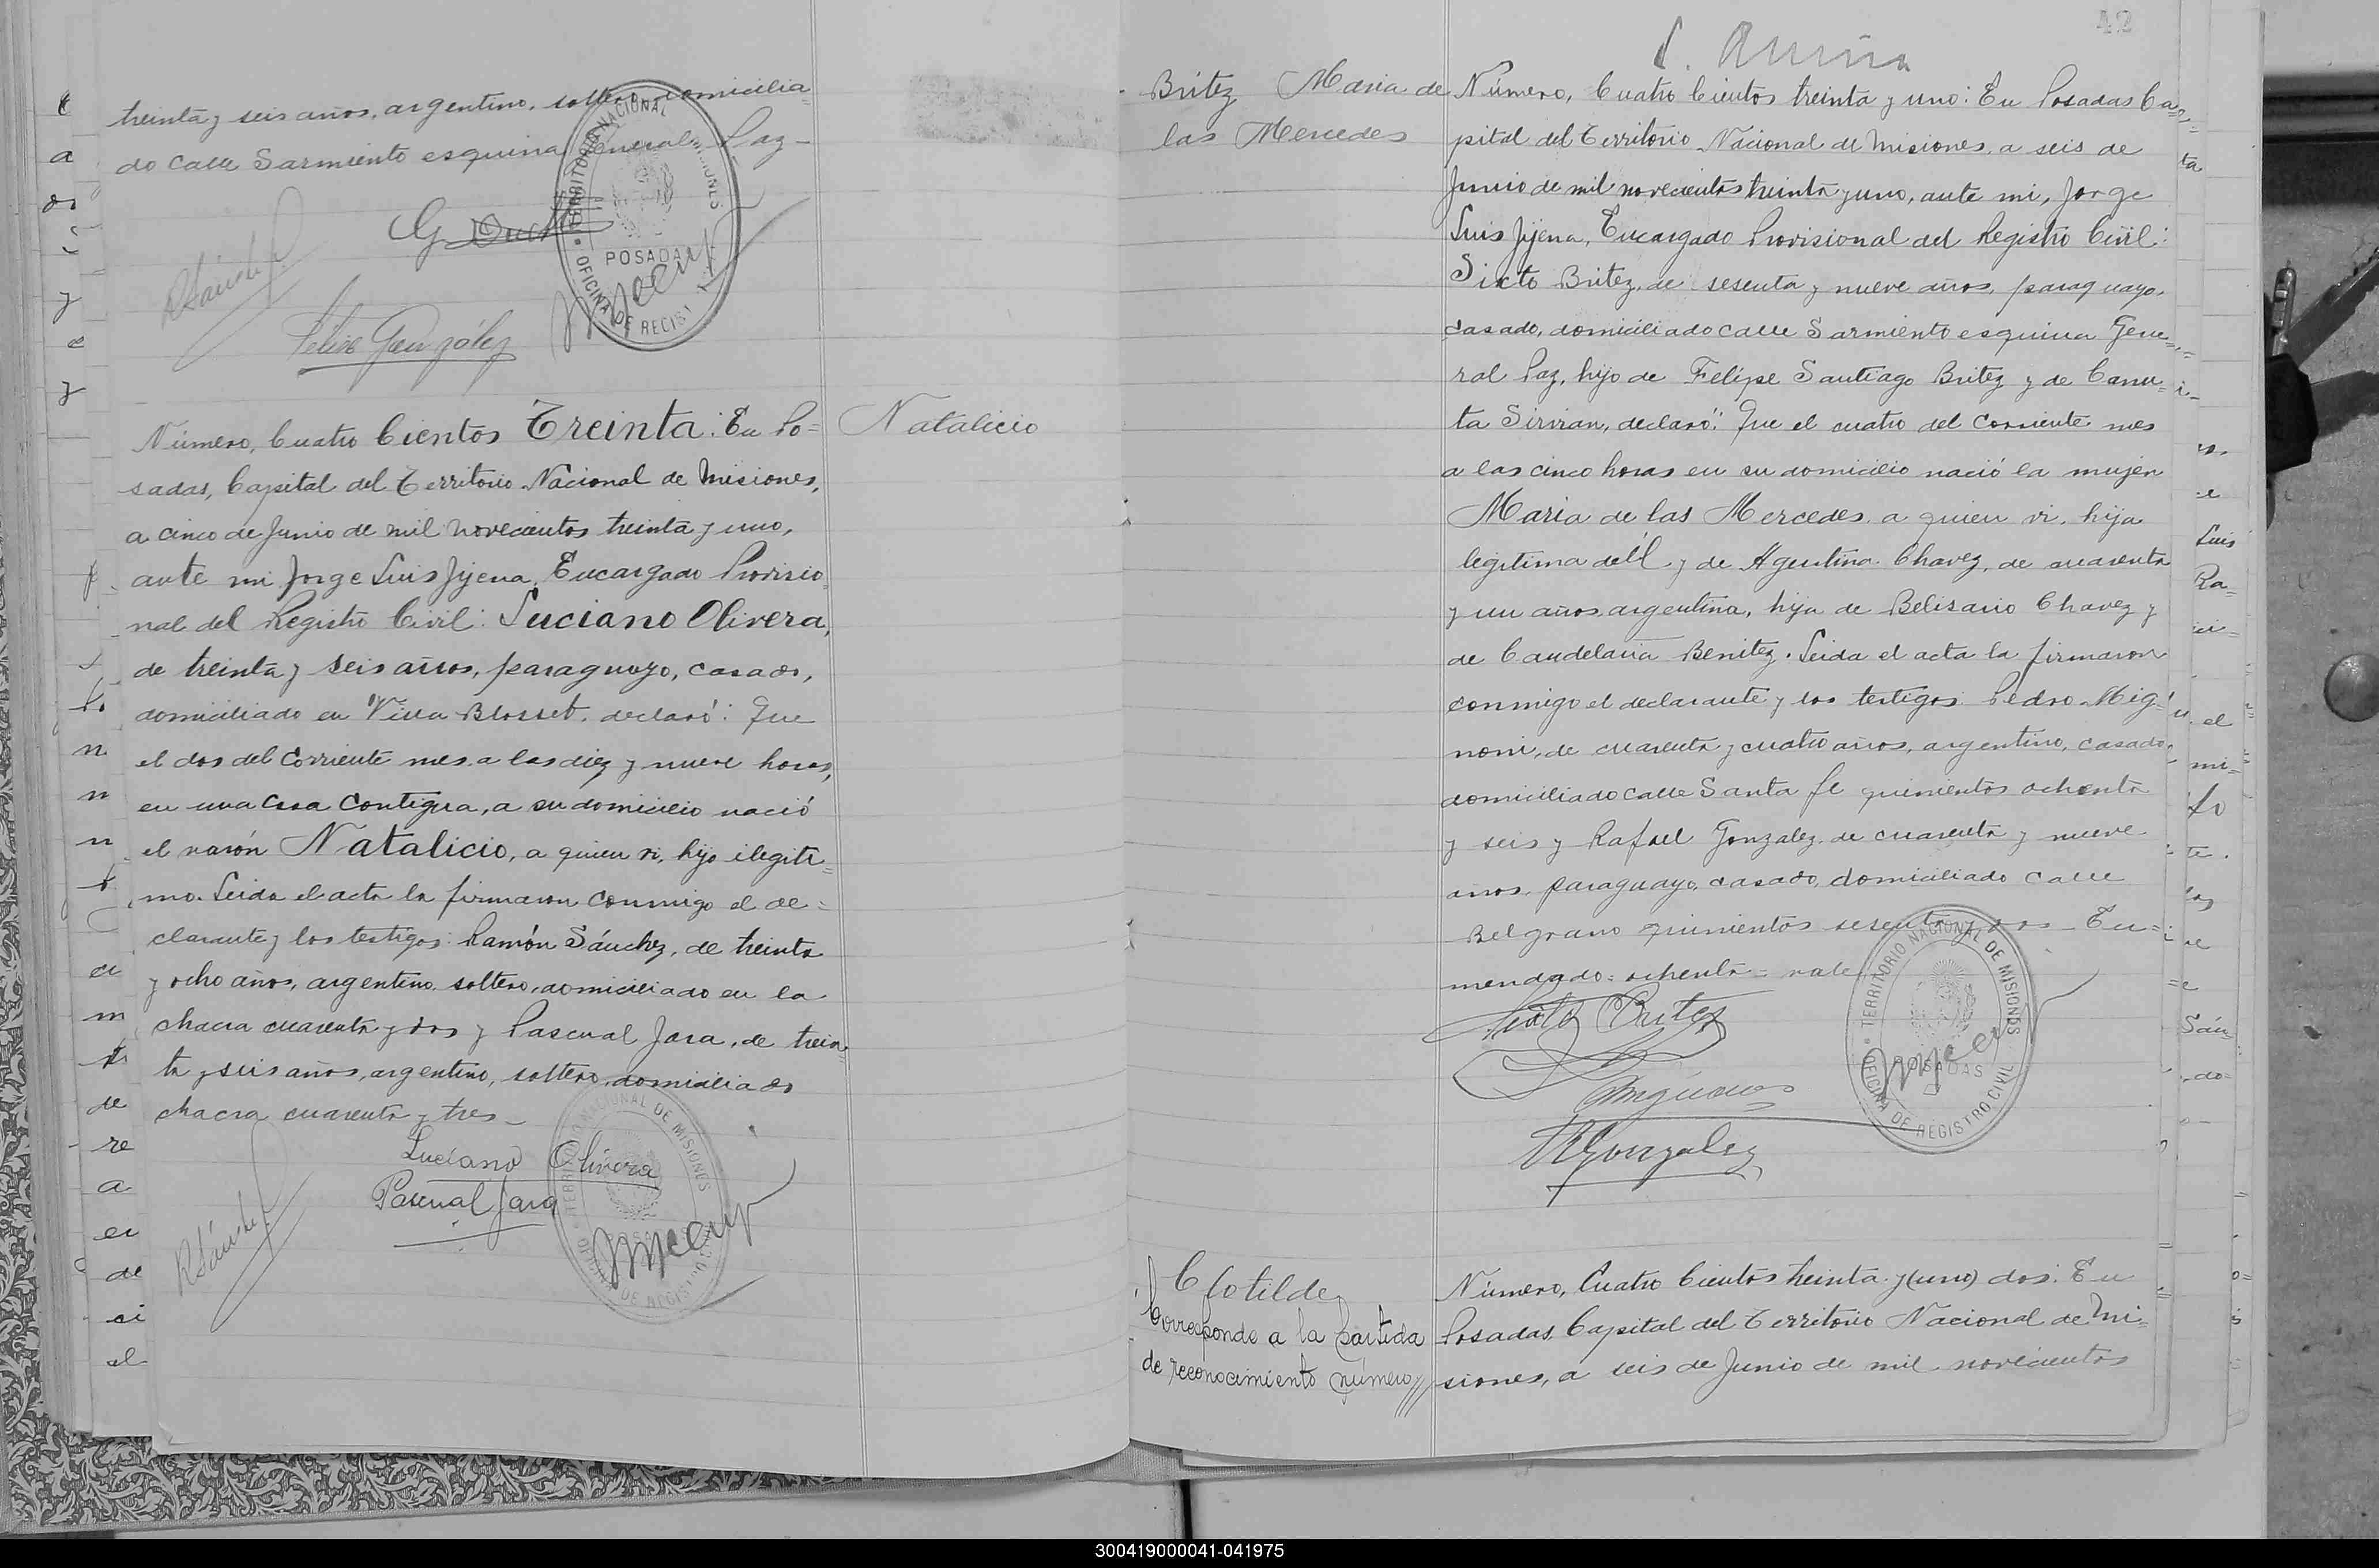 treinta y seis años, argentino, soltero domicilia
do calle Sarmiento esquina General Paz-
TERRITORIO NACIONAL DE MISIONES
POSADAS
OFICINA DE REGISTRO CIVIL
RSánchez
Félix González
Número, Cuatro Cientos Treinta: En Po=
sadas, Capital del Territorio Nacional de Misiones,
a cinco de Junio de mil novecientos treinta y uno,
ante mi Jorge Luis Jijena, Encargado Provisio
nal del Registro Civil: Luciano Olivera,
de treinta y seis años, paraguayo, casado,
domiciliado en Villa Blosset, declaró: Que
el dos del corriente mes a las diez y nueve horas,
en una casa contigua, a su domicilio nació
el varón Natalicio, a quien vi, hijo ilegiti=
mo. Leida el acta la firmaron conmigo el de=
clarante y los testigos: Ramón Sánchez, de treinta
y ocho años, argentino, soltero, domiciliado en la
chacra cuarenta y dos y Pascual Jara, de trein
ta y seis años, argentino, soltero, domiciliado
chacra cuarenta y tres-
Luciano Olivera
Pascual Jara
RSánchez
TERRITORIO NACIONAL DE MISIONES
POSADAS
OFICINA DE REGISTRO CIVIL
Natalicio
42
Britez Maria de
las Mercedes
Número, Cuatro Cientos treinta y uno: En Posadas Ca=
pital del Territorio Nacional de Misiones, a seis de
Junio de mil novecientos treinta y uno, ante mi, Jorge
Luis Jijena, Encargado Provisional del Registro Civil:
Sixto Britez, de sesenta y nueve años, paraguayo,
casado, domiciliado calle Sarmiento esquina Gene=
ral Paz, hijo de Felipe Santiago Britez y de Canu=
ta Sirvian, declaró: Que el cuatro del corriente mes
a las cinco horas en su domicilio nació la mujer
Maria de las Mercedes a quien vi, hija
legitima de él y de Agentina Chavez, de cuarenta
y un años argentina, hija de Belisario Chavez y
de Candelaria Benitez. Leida el acta la firmaron
conmigo el declarante y los testigos: Pedro Mig=
noni, de cuarenta y cuatro años, argentino, casado,
domiciliado calle Santa fe quinientos ochenta
y seis y Rafael Gonzalez de cuarenta y nueve
años, paraguayo, casado, domiciliado calle
Belgrano quinientos sesenta y dos- En=
mendado: ochenta= vale
Sixto Britez
RGonzalez
TERRITORIO NACIONAL DE MISIONES
POSADAS
OFICINA DE REGISTRO CIVIL
Clotilde
Corresponde a la partida
de reconocimiento número
Número, Cuatro Cientos treinta y (uno) dos: En
Posadas, Capital del Territorio Nacional de Mi=
siones, a seis de Junio de mil novecientos
300419000041-041975